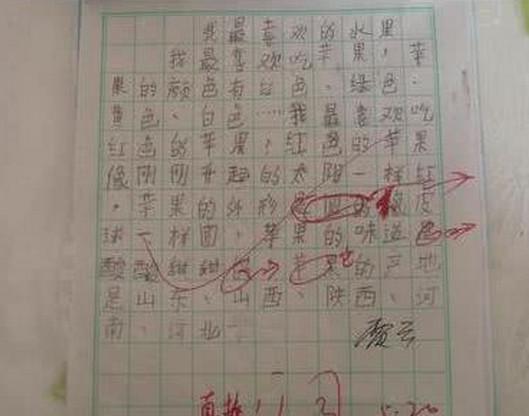 我最喜欢的水果
我最喜欢吃苹果，苹
果的颜色有红色、绿色、
黄色、白色……我最喜欢吃
红色的苹果，红色的苹果
像刚刚升起的太阳一样红
，苹果的外形是圆的像皮
球一样圆，苹果的味道是
酸酸甜甜的，苹果的产地
是山东、山西、陕西、河
南、河北。